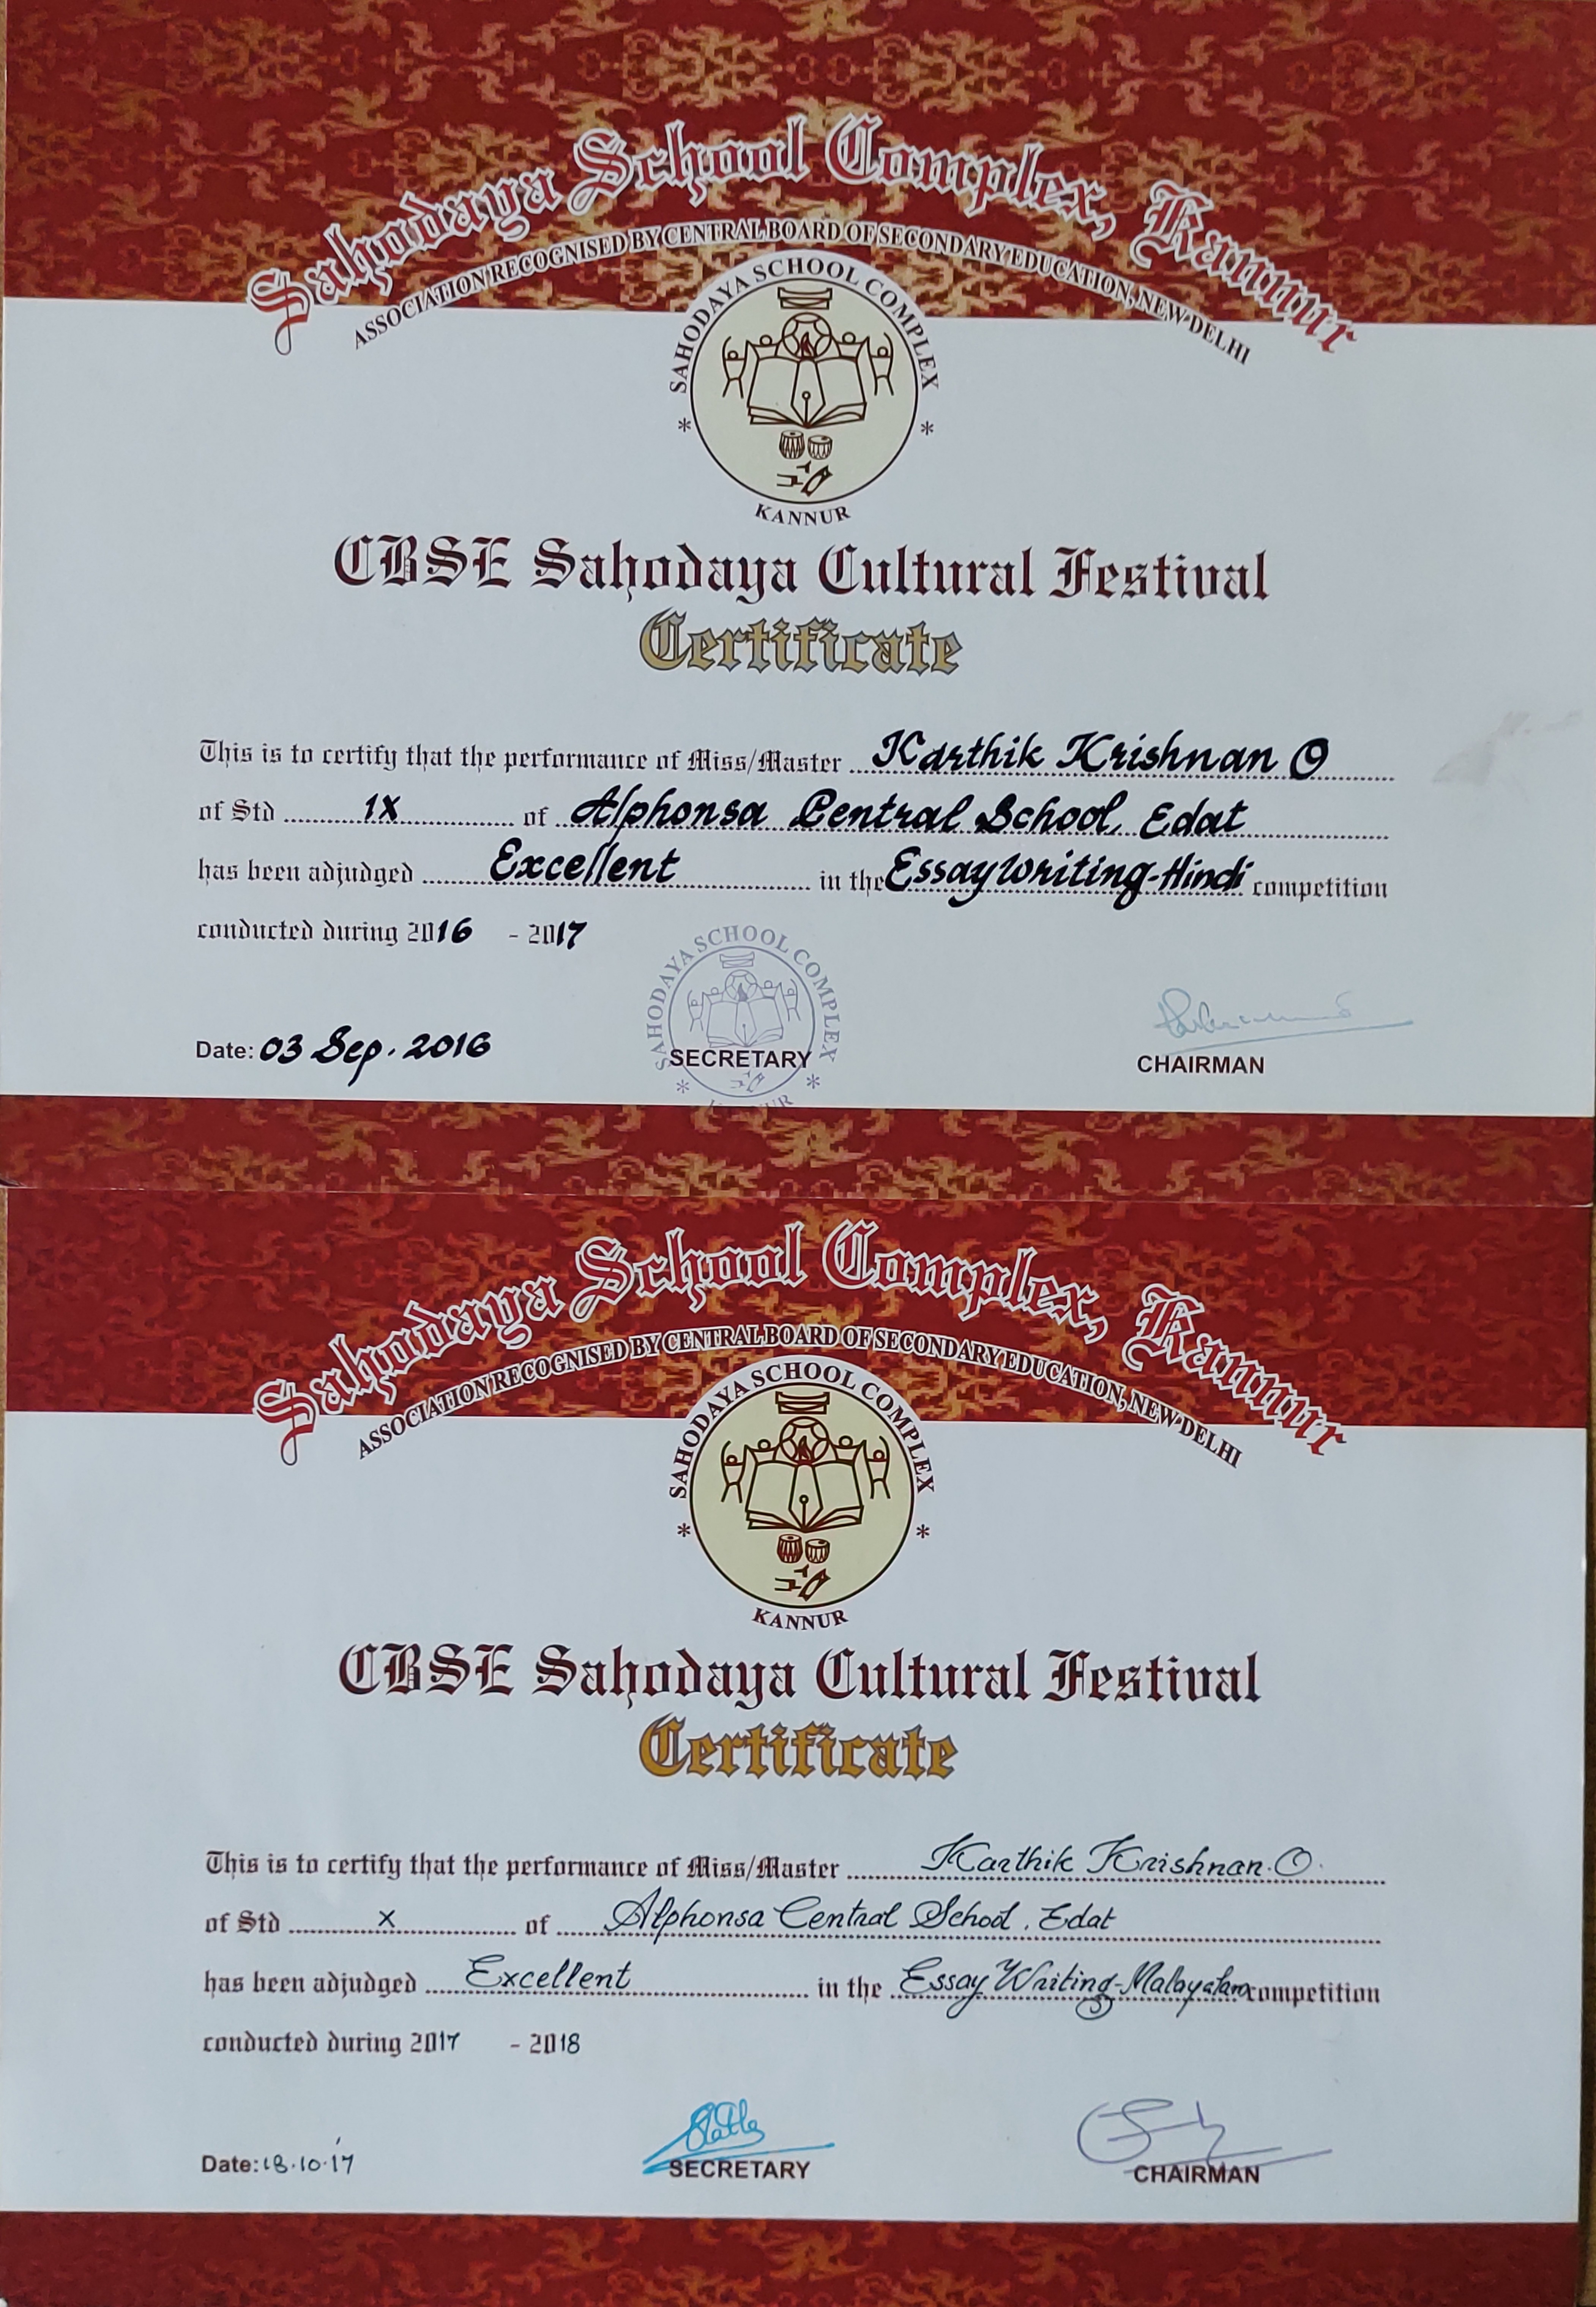 Sahodaya School Complex, Kannur
ASSOCIATION RECOGNISED BY CENTRAL BOARD OF SECONDARY EDUCATION, NEW DELHI
SAHODAYA SCHOOL COMPLEX
* *
KANNUR
CBSE Sahodaya Cultural Festival
Certificate
This is to certify that the performance of Miss/Master Karthik Krishnan O
of Std 1X of Alphonsa Central School, Edat
has been adjudged Excellent in the Essay Writing-Hindi competition
conducted during 2016 - 2017
SAHODAYA SCHOOL COMPLEX
* *
KANNUR
Date: 03 Sep. 2016 SECRETARY CHAIRMAN
Sahodaya School Complex, Kannur
ASSOCIATION RECOGNISED BY CENTRAL BOARD OF SECONDARY EDUCATION, NEW DELHI
SAHODAYA SCHOOL COMPLEX
* *
KANNUR
CBSE Sahodaya Cultural Festival
Certificate
This is to certify that the performance of Miss/Master Karthik Krishnan.O.
of Std X of Alphonsa Central School, Edat
has been adjudged Excellent in the Essay Writing-Malayalam competition
conducted during 2017 - 2018
Date: 18.10.'17 SECRETARY CHAIRMAN